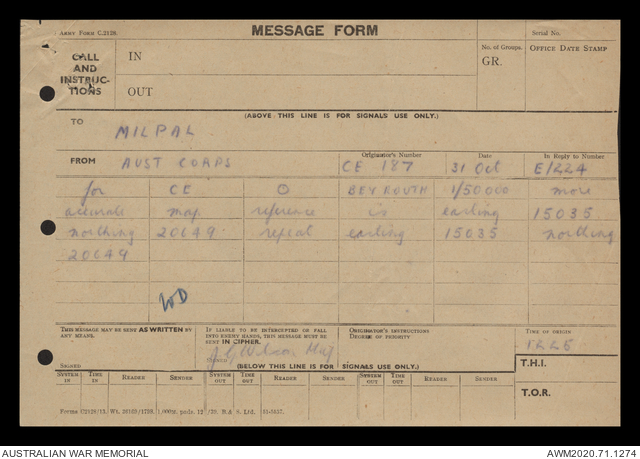 Army Form C.2128.
MESSAGE FORM
Serial No.
CALL AND INSTRUCTIONS
IN
OUT
No. of Groups.
GR.
OFFICE DATE STAMP
(ABOVE THIS LINE IS FOR SIGNALS USE ONLY.)
TO MILPAL
FROM AUST CORPS
Originator's Number
CE 187
Date
31 Oct
In Reply to Number
E/224
for CE O BEYROUTH 1/50000 more
accurate map reference is easting 15035
northing 20649 repeat easting 15035 northing
20649
WD
THIS MESSAGE MAY BE SENT AS WRITTEN BY ANY MEANS.
SIGNED
IF LIABLE TO BE INTERCEPTED OR FALL INTO ENEMY HANDS, THIS MESSAGE MUST BE SENT IN CIPHER.
SIGNED Wilson Maj
ORIGINATOR'S INSTRUCTIONS
DEGREE OF PRIORITY
TIME OF ORIGIN
1225
(BELOW THIS LINE IS FOR SIGNALS USE ONLY.)
T.H.I.
T.O.R.
SYSTEM IN TIME IN READER SENDER SYSTEM OUT TIME OUT READER SENDER SYSTEM OUT TIME OUT READER SENDER
AUSTRALIAN WAR MEMORIAL
AWM2020.71.1274